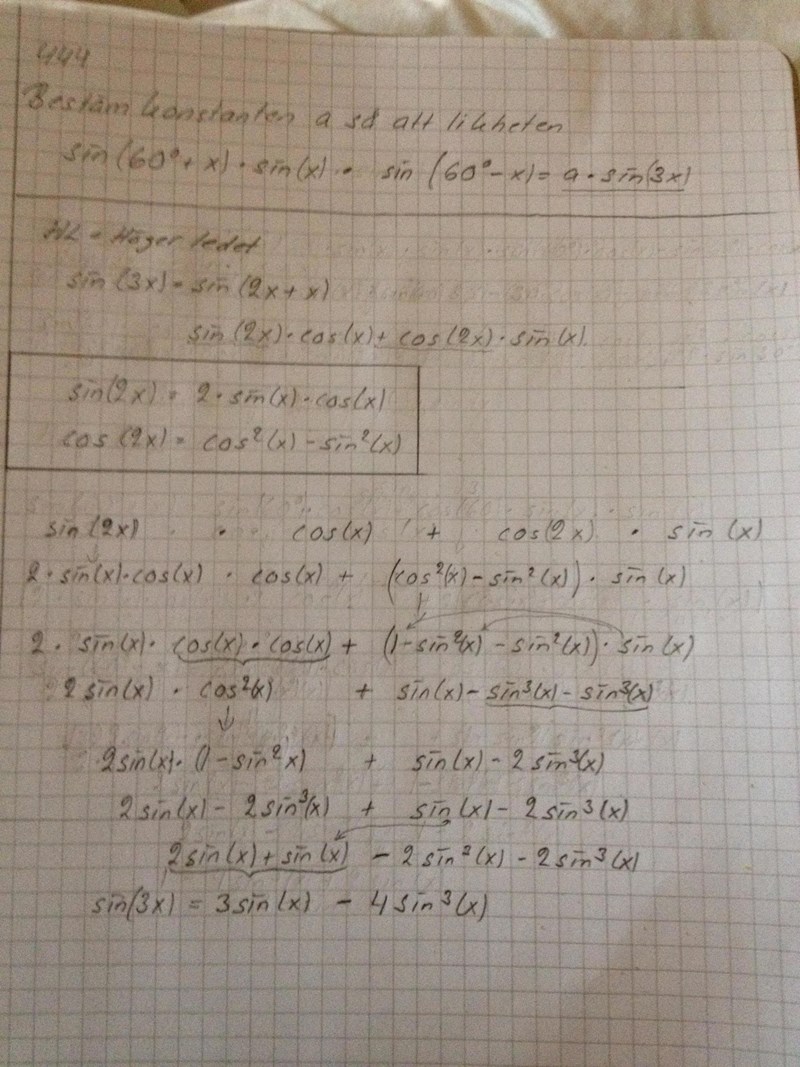 444
Bestäm konstanten a så att likheten
sin(60°+x)·sin(x)· sin(60°-x)= a·sin(3x)
HL = Höger ledet
sin(3x)= sin(2x+x)
sin(2x)·cos(x)+ cos(2x)·sin(x).
sin(2x)= 2·sin(x)·cos(x)
cos(2x)= cos²(x)-sin²(x)
sin(2x) · cos(x) + cos(2x) · sin(x)
2·sin(x)·cos(x) · cos(x) + (cos²(x)-sin²(x))· sin(x)
2· sin(x)· cos(x)·cos(x) + (1-sin²(x)-sin²(x))·sin(x)
2sin(x) · cos²(x) + sin(x)- sin³(x)- sin³(x)
2sin(x)· (1-sin²x) + sin(x)- 2sin³(x)
2sin(x)- 2sin³(x) + sin(x)- 2sin³(x)
2sin(x)+sin(x) - 2sin²(x)- 2sin³(x)
sin(3x) = 3sin(x) - 4sin³(x)